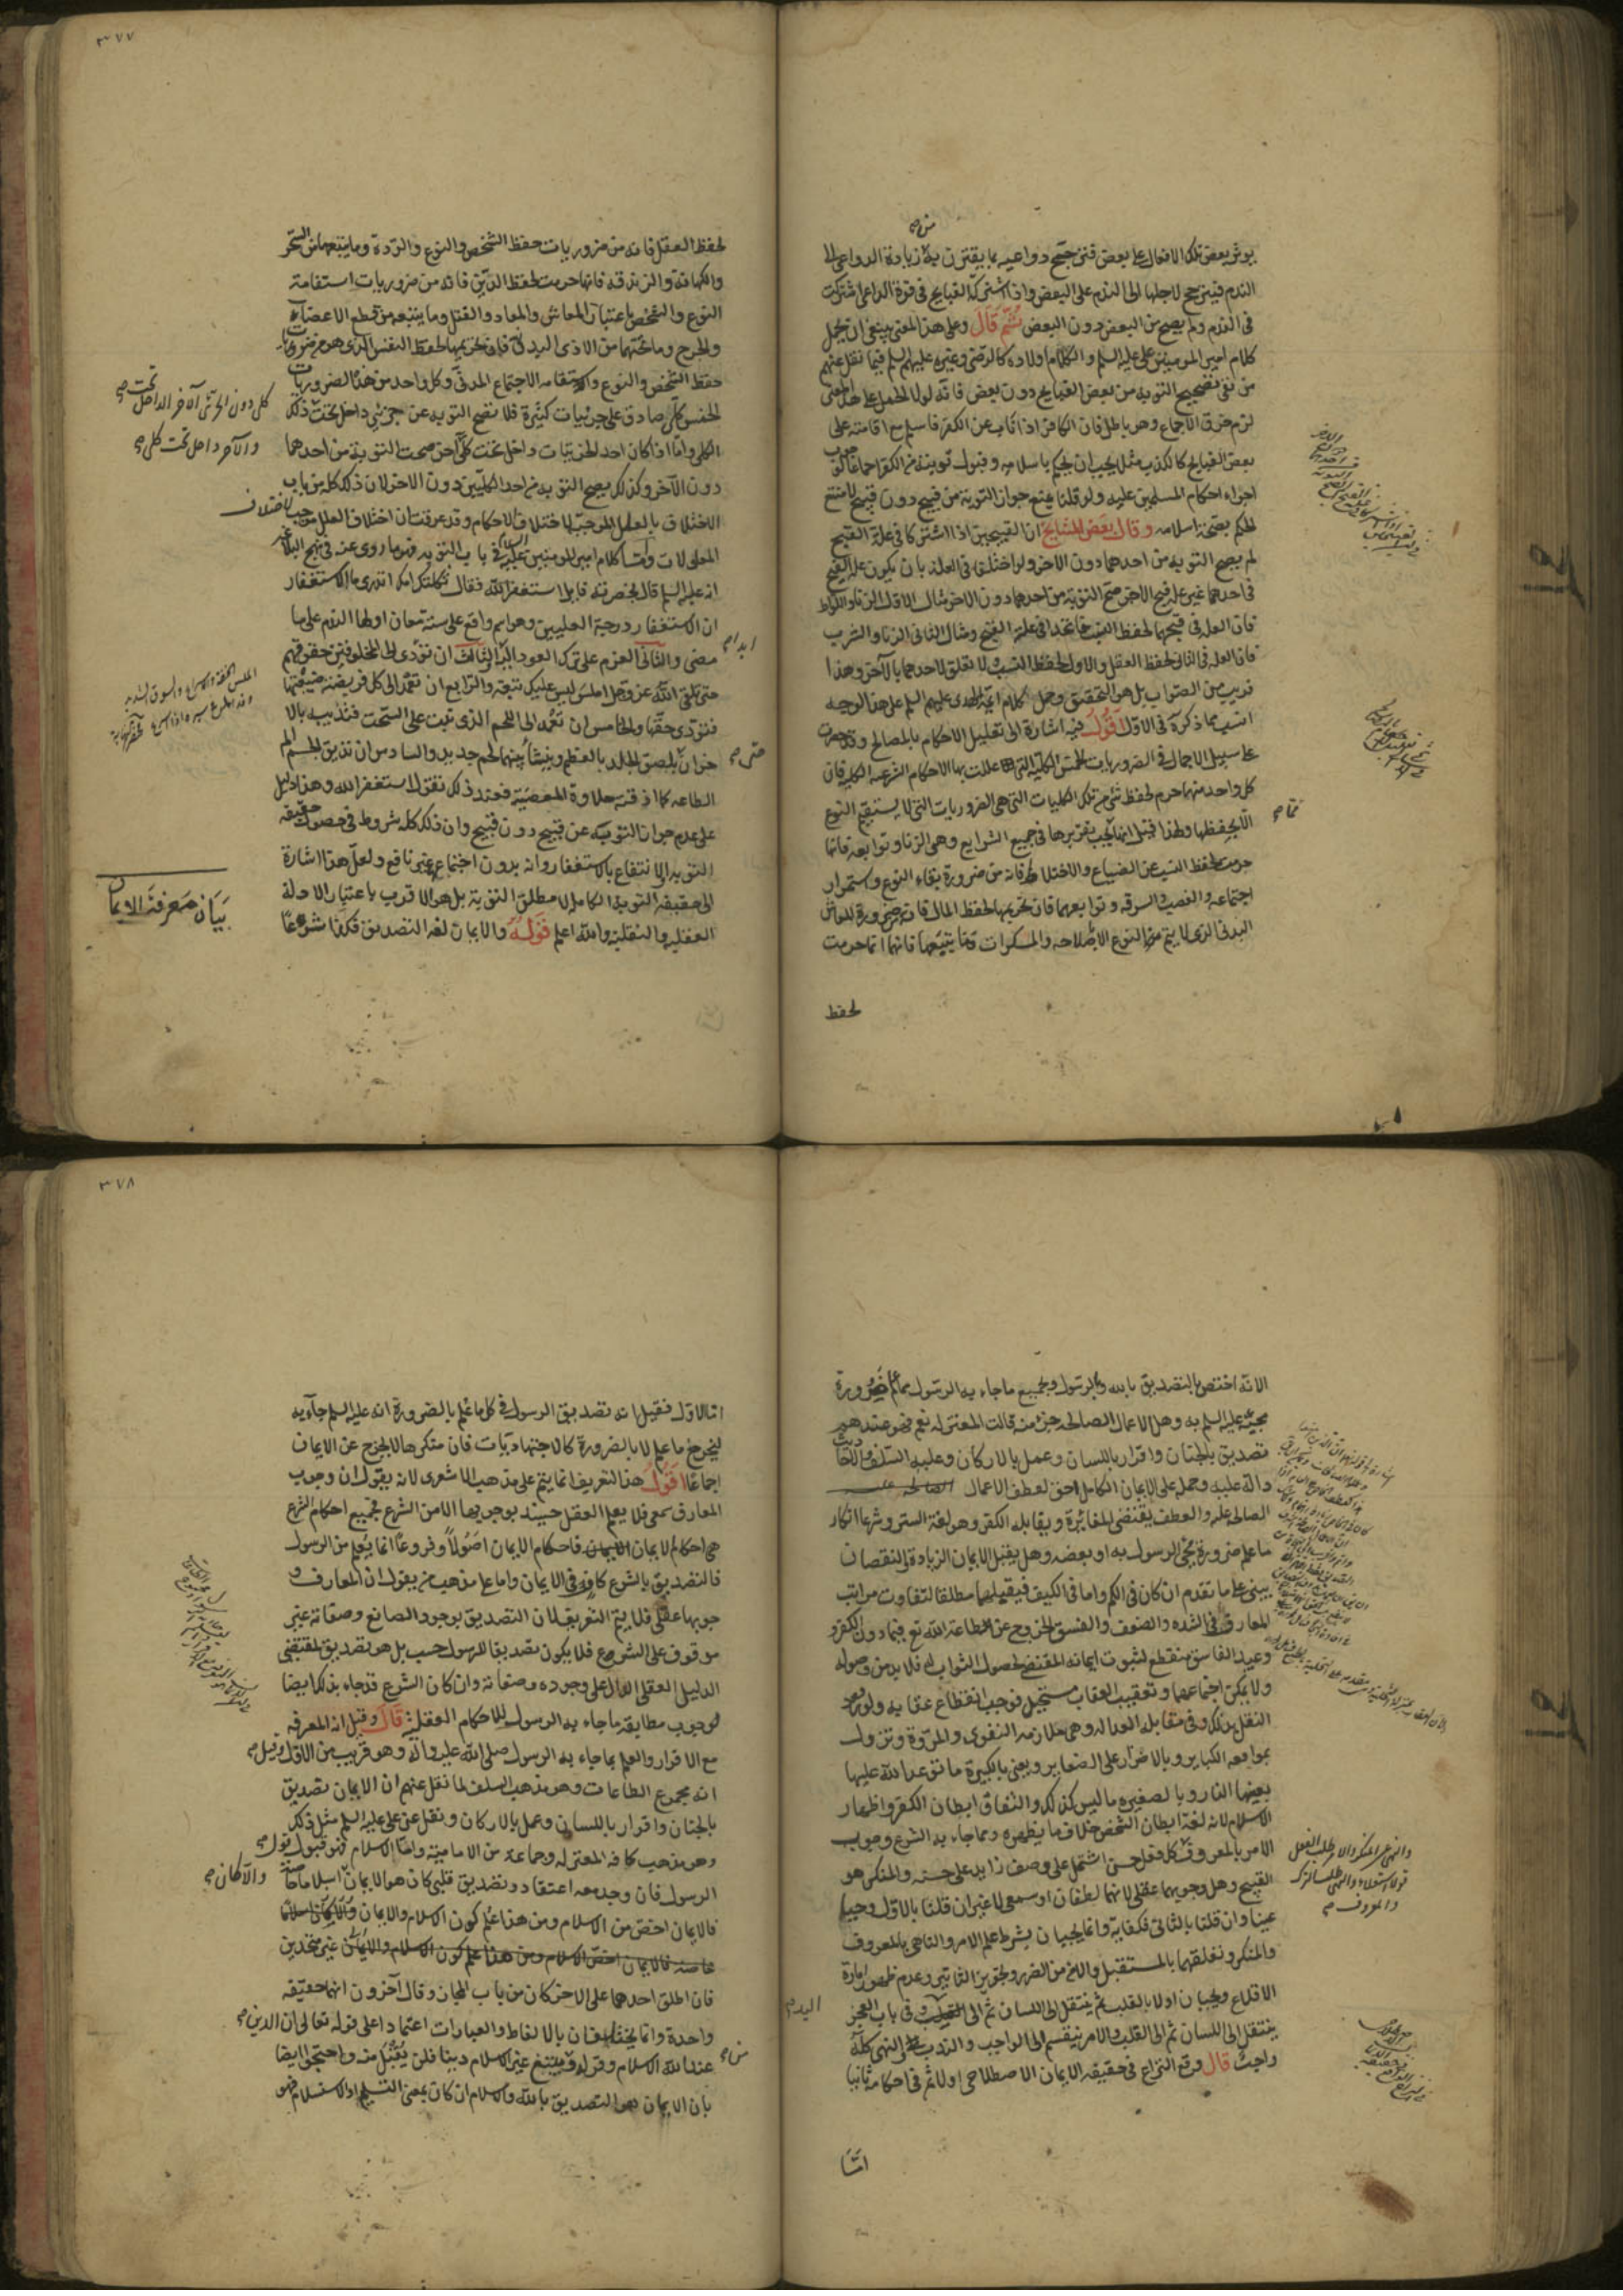 يوثر بعض تلك الافعال على بعض فترجح دواعيه بما يقترن به زيادة الدواعي الى
الندم فيترجح لاجلها الى الندم على البعض واذا اشتركت القبايح في قوة الداعي اشتركت
في الندم ولم يصح من البعض دون البعض ثم قال وعلى هذا المعنى ينبغي ان يحمل
كلام امير المومنين علي عليه السلم والكلام اولاده كالرضي وغيره عليهم السلم فيما نقل عنهم
من نفي تصحيح التوبة من بعض القبايح دون بعض فانه لولا الحمل على هذا المعنى
لزم خرق الاجماع وهو باطل فان الكافر اذا تاب عن الكفر فاسلم مع اقامته على
بعض القبايح كالكذب مثلا يجب ان يحكم باسلامه وقبول توبته من الكفر اجماعا
اجراء احكام المسلمين عليه ولو قلنا يمنع جواز التوبة من قبيح دون قبيح لامتنع
الحكم بصحة اسلامه وقال بعض المشايخ ان القبيحين اذا اشتركا في علة القبح
لم يصح التوبة من احدهما دون الاخر ولو اختلفا في العلة بان يكون علة القبح
في احدهما غير علة قبح الاخر صح التوبة من احدهما دون الاخر مثال الاول الزنا واللواط
فان العلة في قبحهما لحفظ النسب فاتحدا في علة القبح ومثال الثاني الزنا والشرب
فان العلة في الثاني لحفظ العقل والاول لحفظ النسب لا تعلق لاحدهما بالآخر وهذا
قريب من الصواب بل هو التحقيق وحمل كلام ايمة الهدى عليهم السلم على هذا الوجه
انسب مما ذكره في الاول اقول فيه اشارة الى تعليل الاحكام بالمصالح وقد
على سبيل الاجمال في الضروريات الخمس الكلية التي عللت بها الاحكام الشرعية الكلية فان
كل واحد منها حرم لحفظ شيء من تلك الكليات التي هي الضروريات التي لا يستقيم النوع
الا بحفظها ولهذا قيل انها يجب تقريرها في جميع الشرايع وهي الزنا وتوابعه فانها
حرمت لحفظ النسب عن الضياع والاختلاط فانه من ضرورة بقاء النوع واستمرار
اجتماعه والغصب والسرقه وتوابعهما فان تحريمها لحفظ المال فانه ضرورة للمعاش
البدني الذي لا يتم النوع الا بصلاحه والمسكرات وما يتبعها فانها انما حرمت
لحفظ
٣٧٧
لحفظ العقل فانه من ضروريات حفظ الشخص والنوع والردة وما يتبعها من السحر
والكهانة والزندقه فانها حرمت لحفظ الدين فانه من ضروريات استقامة
النوع والشخص باعتبار المعاش والمعاد والقتل وما يتبعه من قطع الاعضاء
والجرح وما تحتهما من الاذى البدني فان تحريمها لحفظ النفس الذي هو من ضروريات
حفظ الشخص والنوع واستقامة الاجتماع المدني وكل واحد من هذه الضروريات
الخمس كلي صادق على جزئيات كثيرة فلا تصح التوبه عن جزئي داخل تحت ذلك
الكلي واما اذا كان احد الجزئيات داخل تحت كلي آخر صحت التوبة من احدهما
دون الآخر وكذلك يصح التوبه من احد الكليتين دون الاخر لان ذلك كله من باب
الاختلاف بالعلل الموجبة لاختلاف الاحكام وقد عرفت ان اختلاف العلل موجب لاختلاف
المعلولات واما كلام امير المومنين عليه السلام في باب التوبه فهو ما روي عنه في نهج البلاغه
انه عليه السلم قال بحضرته قايلا استغفر الله فقال ثكلتك امك اتدري ما الاستغفار
ان الاستغفار درجة العليين وهو اسم واقع على ستة معان اولها الندم على ما
مضى والثاني العزم على ترك العود اليه ابدا الثالث ان تؤدي الى المخلوقين حقوقهم
حتى تلقى الله عز وجل املس ليس عليك تبعة والرابع ان تعمد الى كل فريضة ضيعتها
فتؤدي حقها والخامس ان تعمد الى اللحم الذي نبت على السحت فتذيبه بالا
حزان حتى يلصق الجلد بالعظم وينشأ بينهما لحم جديد والسادس ان تذيق الجسم الم
الطاعه كما اذقته حلاوة المعصية فعند ذلك تقول استغفر الله وهذا دليل
على عدم جواز التوبه عن قبيح دون قبيح وان ذلك كله شروط في حصول حقيقه
التوبه الانتفاع بالاستغفار وانه بدون اجتماع غير نافع ولعل هذا اشارة
الى حقيقة التوبة الكاملة لا مطلق التوبة بل هو الاقرب باعتبار الادلة
العقليه والنقلية والله اعلم قوله والايمان لغة التصديق فكذا شرعا
كلي دون الجزئي الآخر الداخل تحت
والآخر داخل تحت كلي
بيان معرفة الايمان
الا انه اختص بالتصديق بالله وبالرسول وبجميع ما جاء به الرسول مما علم ضرورة
مجيئه عليه السلم به وهل الاعمال الصالحه جزء منه قالت المعتزله نعم فهو عندهم
تصديق بالجنان واقرار باللسان وعمل بالاركان وعليه السلف والاحاديث
دالة عليه وحمله على الايمان الكامل احق لعطف الاعمال
الصالحة عليه والعطف يقتضي المغايرة ويقابله الكفر وهو لغة الستر وشرعا انكار
ما علم ضرورة مجئ الرسول به او بعضه وهل يقبل الايمان الزيادة والنقصان
يبنى على ما تقدم ان كان في الكم واما في الكيف فيقبلهما مطلقا لتفاوت مراتب
المعارف في الشده والضعف والفسق الخروج عن طاعة الله تع فيما دون الكفر و
وعيد الفاسق منقطع لثبوت ايمانه المقتضي لحصول الثواب له فلا بد من وصوله
ولا يمكن اجتماعهما وتعقيب العقاب مستحيل فوجب انقطاع عقابه ولورود
النقل بذلك وفي مقابله العداله وهي ملازمه التقوى والمروة وتزول
بمواقعه الكباير وبالاصرار على الصغاير ويعنى بالكبيرة ما توعد الله عليها
بعينها النار وبالصغيره ما ليس كذلك والنفاق ابطان الكفر واظهار
الاسلام لانه لغة ابطان الشخص خلاف ما يظهره ومما جاء به الشرع وجوب
الامر بالمعروف كل فعل حسن اشتمل على وصف زايد على حسنه والمنكر هو
القبيح وهل وجوبهما عقلي لانهما لطفان او سمعي لا غير ان قلنا بالاول وجبا
عينا وان قلنا بالثاني فكفاية وانما يجبان بشرط علم الامر والناهي بالمعروف
والمنكر وتعلقهما بالمستقبل والامن من الضرر وتجويز التاثير وعدم ظهور امارة
الاقلاع ويجبان اولا بالقلب ثم ينتقل الى اللسان ثم الى اليد وفي باب العجز
ينتقل الى اللسان ثم الى القلب والامر ينقسم الى الواجب والندب والنهي كله
واجب قال وقع النزاع في حقيقه الايمان الاصطلاحي اولا ثم في احكامه ثانيا
والنهي عن المنكر والامر طلب الفعل
قولا استعلاء والنهي طلب الترك
والمعروف
اما
٣٧٨
اما الاول فقيل انه تصديق الرسول في كل ما علم بالضرورة انه عليه السلم جاء به
ليخرج ما علم لا بالضرورة كالاجتهاديات فان منكرها لا يخرج عن الايمان
اجماعا اقول هذا التعريف انما يتم على مذهب الاشعري لانه يقول ان وجوب
المعارف سمعي فلا يعلم العقل حينئذ بوجوبها الا من الشرع فجميع احكام الشرع
هي احكام الايمان فاحكام الايمان اصولا وفروعا انما يعلم من الرسول
فالتصديق بالشرع كاف في الايمان واما على مذهب من يقول ان المعارف و
جوبها عقلي فلا يتم التعريف لان التصديق بوجود الصانع وصفاته غير
موقوف على الشرع فلا يكون تصديقا للرسول حسب بل هو تصديق لمقتضى
الدليل العقلي الدال على وجوده وصفاته وان كان الشرع قد جاء بذلك ايضا
لوجوب مطابقة ما جاء به الرسول للاحكام العقلية قال وقيل انه المعرفه
مع الاقرار والعلم بما جاء به الرسول صلى الله عليه وآله وهو قريب من الاول وقيل
انه مجموع الطاعات وهو مذهب السلف لما نقل عنهم ان الايمان تصديق
بالجنان واقرار باللسان وعمل بالاركان ونقل عن علي عليه السلم مثل ذلك
وهو مذهب كافه المعتزله وجماعة من الاماميه واما الاسلام فهو قبول قول
الرسول فان وجد معه اعتقاد وتصديق قلبي كان هو الايمان والا كان اسلاما خاصة
فالايمان اخص من الاسلام ومن هذا علم كون الاسلام والايمان
خاصة فالايمان اخص الاسلام ومن هذا علم كون الاسلام والايمان غير متحدين
فان اطلق احدهما على الاخر كان من باب المجاز وقال آخرون انهما حقيقه
واحدة وانما يختلفان بالالفاظ والعبارات اعتمادا على قوله تعالى ان الدين
عند الله الاسلام وقوله ومن يبتغ غير الاسلام دينا فلن يقبل منه واحتجوا ايضا
بان الايمان هو التصديق بالله والاسلام ان كان بمعنى التسليم او الاستسلام فهو